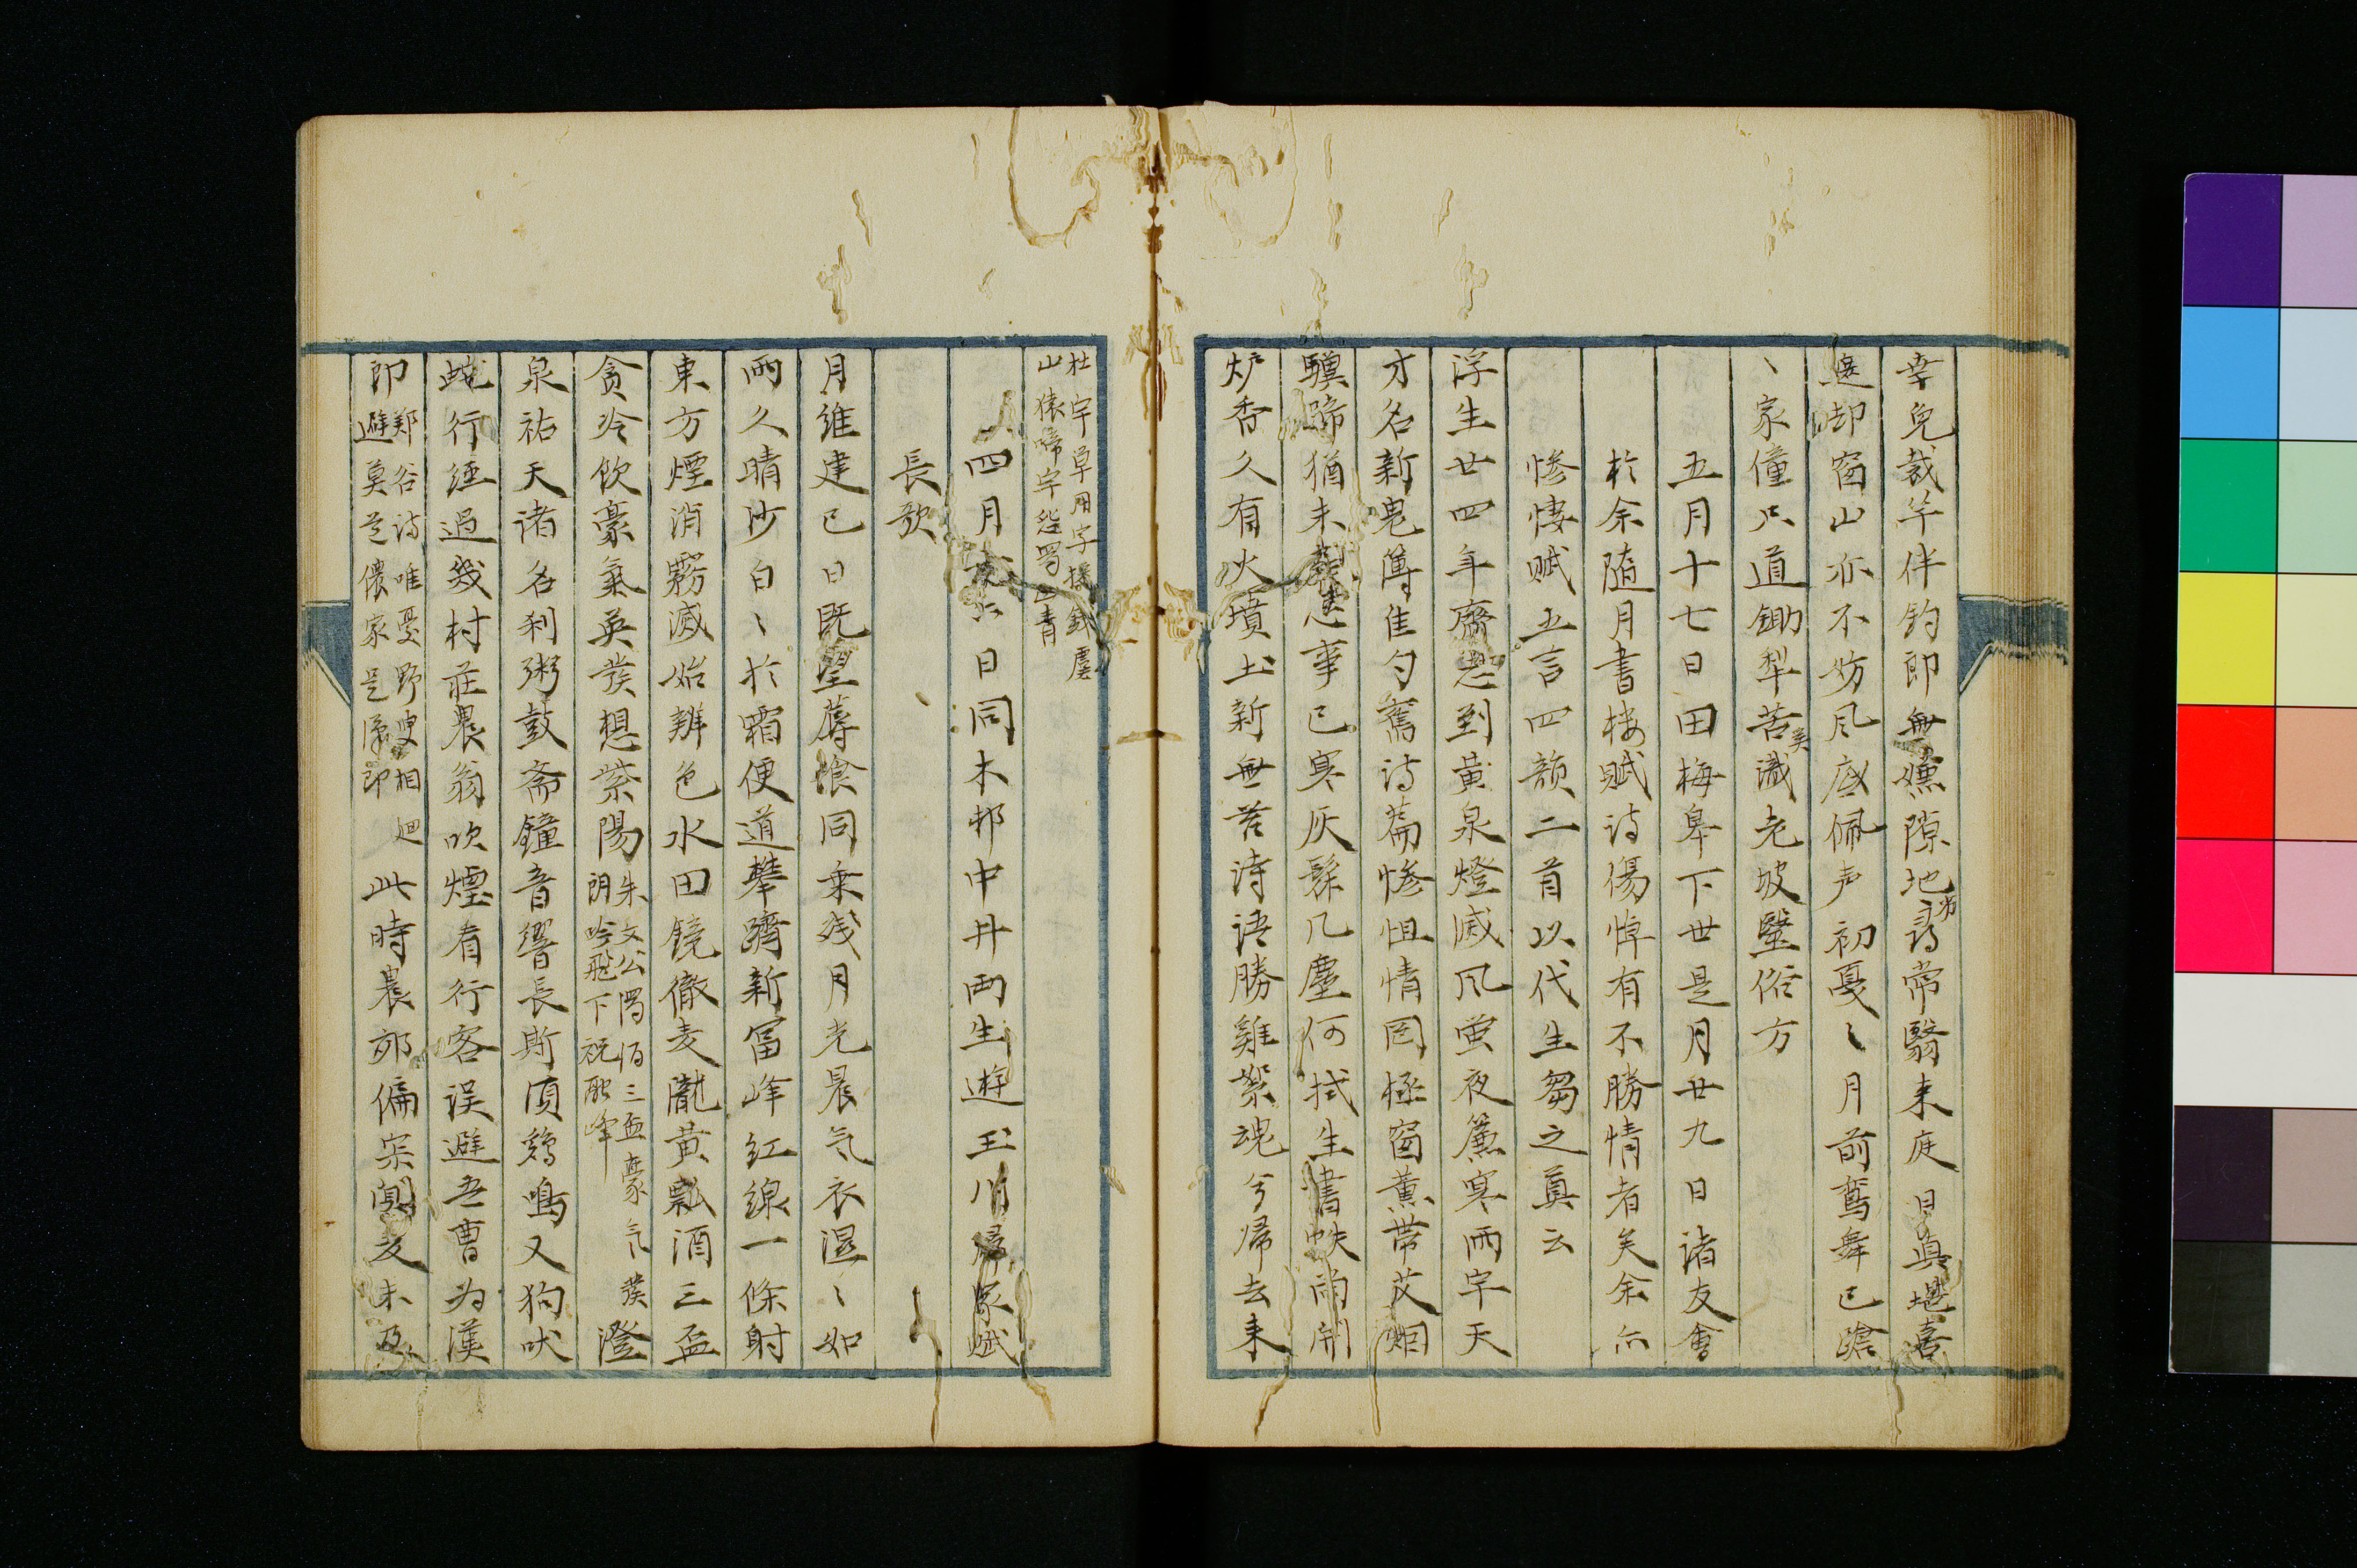 幸免裁竿伴釣郎無嫌隙地尋常翳来庭日真堪喜
遮却窗山亦不妨風底佩声初戞〻月前鸞舞已蹌
〻家僮只道鋤犁苦識老坡毉俗方
五月十七日田梅皋下世是月廿九日諸友會
於余随月書楼賦詩傷悼有不勝情者矣余亦
惨悽賦五言四韻二首以代生芻之真云
浮生廿四年齎志到黄泉燈滅風蛍夜簾寒雨宇天
才名新鬼簿佳句旧詩篇惨怛情罔極窗薫帯艾烟
驥蹄猶未志事已寒灰髹几塵何拭生書帙尚開
炉香久有火墳土新無苔詩語勝雞絮魂兮帰去来
杜宇草用字様針塵
山猿啼字怨冩山青
四月六日同木邨中井両生遊玉川帰家賦
長歌
月維建已日既望蓐飡同乗残月光晨気衣湿〻如
雨久晴沙白〻於霜便道攀躋新冨峰紅線一條射
東方煙消霧滅始辨色水田鏡徹麦隴黄瓢酒三盃
貪冷飲豪氣英発想紫陽朱文公濁酒三盃豪気発朗吟飛下祝融峰澄
泉祐天諸名刹粥鼓斎鐘音響長斯須鶏鳴又狗吠
此行経過幾村荘農翁吹煙看行客誤避吾曹為漢
郎鄭谷詩唯憂野叟相廻避莫是儂家是漢郎此時晨郊偏寂聞友未及